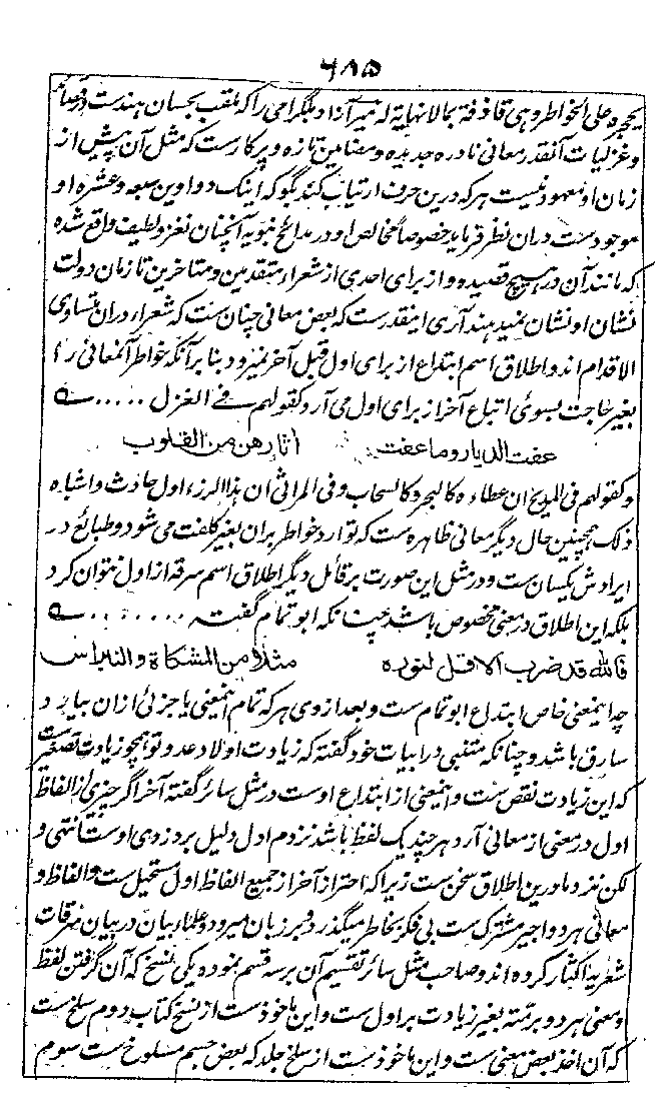 ۶۸۵
یجره علی الخواطر وهی قاذفة بما لا نهایة له میر آزاد بلگرامی را که ملقب بحسان هندست در قصائد
و غزلیات آنقدر معانی نادره جدیده و مضامین تازه و پرکارست که مثل آن پیش از
زمان او معهود نیست هر که درین حرف ارتیاب کند بگو که اینک دواوین سبعه و عشره او
موجودست در آن نظر فرماید خصوصا مخالص او در مدائح نبویه آنچنان نغز و لطیف واقع شده
که مانند آن در هیچ قصیده و از برای احدی از شعراء متقدمین و متاخرین تا زمان دولت
نشان او نشان نمیدهند آری اینقدرست که بعض معانی چنان ست که شعراء در ان متساوی
الاقدام اند و اطلاق اسم ابتداع از برای اول قبل آخر نمیرود بنا بر آنکه خواطر آنمعانی را
بغیر حاجت بسوئی اتباع آخر از برای اول می آرد کقولهم فی الغزل ..... ے
عفت الدیار وما عفت آثارهن من القلوب
و کقولهم فی المدیح ان عطاءه کالبحر و کالسحاب و فی المراثی ان هذا الرزء اول حادث و اشباه
ذلک همچنین حال دیگر معانی ظاهره ست که توارد خواطر بران بغیر کلفت می شود و طبائع در
ایرادش یکسان ست و در مثل این صورت بر قائل دیگر اطلاق اسم سرقه از اول نتوان کرد
بلکه این اطلاق در معنی مخصوص باشد چنانکه ابو تمام گفته ........ ے
فالله قد ضرب الاقل لنوره مثلا من المشکاة والنبراس
چه اینمعنی خاص ابتداع ابو تمام ست و بعد از وی هر که تمام اینمعنی یا جزئی از ان بیارد
سارق باشد و چنانکه متنبی در ابیات خود گفته که زیادت اولاد عدو تو همچو زیادت تصغیرست
که این زیادت نقص ست و اینمعنی از ابتداع اوست در مثل سائر گفته آخر اگر چیزی از الفاظ
اول در معنی از معانی آرد هر چند یک لفظ باشد نزدم ادل دلیل بر دزدی اوست انتهی و
لکن نزد ما درین اطلاق سخن ست زیرا که احتراز آخر از جمیع الفاظ اول مستحیل ست و الفاظ و
معانی هر دو اجیر مشترک ست بی فکر بخاطر میگذرد و بر زبان میرود و علماء بیان در بیان سرقات
شعریه اکثار کرده اند و صاحب مثل سائر تقسیم آن بر سه قسم نموده یکی نسخ که آن گرفتن لفظ
و معنی هر دو برمته بغیر زیادت بر اول ست و این ماخوذست از نسخ کتاب دوم سلخ ست
که آن اخذ بعض معنی ست و این ماخوذ ست از سلخ جلد که بعض جسم مسلوخ ست سوم